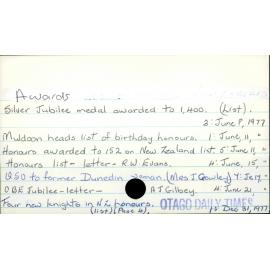 Awards
Silver Jubilee medal awarded to 1,400. (List).
2: June 8, 1977
Muldoon heads list of birthday honours. 1: June, 11, "
Honours awarded to 152 on New Zealand list 5: June 11, "
Honours list - letter - R.W. Evans. 4: June, 15, "
QSO to former Dunedin woman. (Mrs J Gawley) Je 17, "
OBE Jubilee - letter - A J Gilboy. 4: June 21, "
Four new knights in N.Z honours. OTAGO DAILY TIMES
(list) (Page 4). 1: Dec 31, 1977